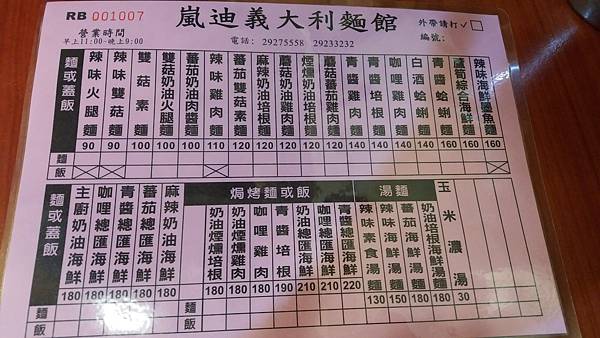 RB 001007
嵐迪義大利麵館
外帶請打✓
營業時間
早上11:00~晚上9:00
電話: 29275558 29233232
編號:
麵或蓋飯
辣味火腿麵 90
辣味雙菇麵 90
雙菇素麵 100
雙菇奶油火腿麵 100
蕃茄奶油肉醬麵 100
辣味雞肉麵 110
蕃茄雙菇麵 120
麻辣奶油培根麵 120
蘑菇奶油雞肉麵 120
煙燻奶油培根麵 120
蘑菇蕃茄雞肉麵 120
青醬雞肉麵 140
青醬培根麵 140
咖哩雞肉麵 140
白酒蛤蜊麵 140
青醬蛤蜊麵 140
蘆筍綜合海鮮麵 160
辣味海鮮墨魚麵 160
麵
飯
麵或蓋飯
主廚奶油海鮮 180
咖哩總匯海鮮 180
青醬總匯海鮮 180
蕃茄總匯海鮮 180
麻辣奶油海鮮 180
麵
飯
焗烤麵或飯
奶油煙燻培根 180
奶油煙燻雞肉 180
咖哩雞肉 180
青醬培根 190
奶油總匯海鮮 210
咖哩總匯海鮮 210
青醬總匯海鮮 220
麵
飯
湯麵
辣味素食湯麵 130
辣味海鮮湯麵 150
蕃茄海鮮湯麵 180
奶油培根海鮮湯麵 180
玉米濃湯 30